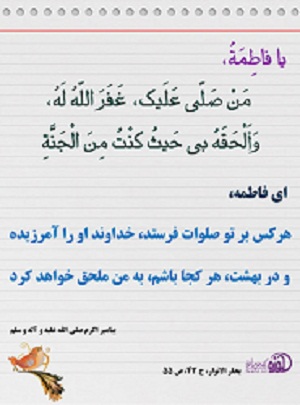 یا فاطِمَةُ،
مَنْ صَلّی عَلَیک، غَفَرَ اللّهُ لَهُ،
وَأَلْحَقَهُ بی حَیثُ کنْتُ مِنَ الْجَنَّةِ
ای فاطمه،
هرکس بر تو صلوات فرستد، خداوند او را آمرزیده
و در بهشت، هر کجا باشم، به من ملحق خواهد کرد
پیامبر اکرم صلی الله علیه و آله و سلم
بحار الانوار، ج ۴۳، ص ۵۵